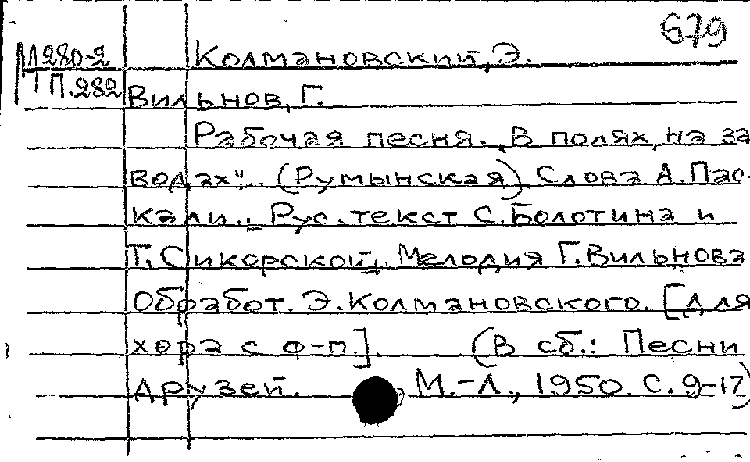 679
М280-2 Колмановский, Э.
П.282
Вильнов, Г.
Рабочая песня. „В полях, на за
водах". (Румынская) Слова А. Пас-
кали. Рус. текст С. Болотина и
Т. Сикорской. Мелодия Г. Вильнова
Обработ. Э. Колмановского. [Для
хора с ф-п.]. (В сб.: Песни
друзей. М.-Л., 1950. С. 9-17)